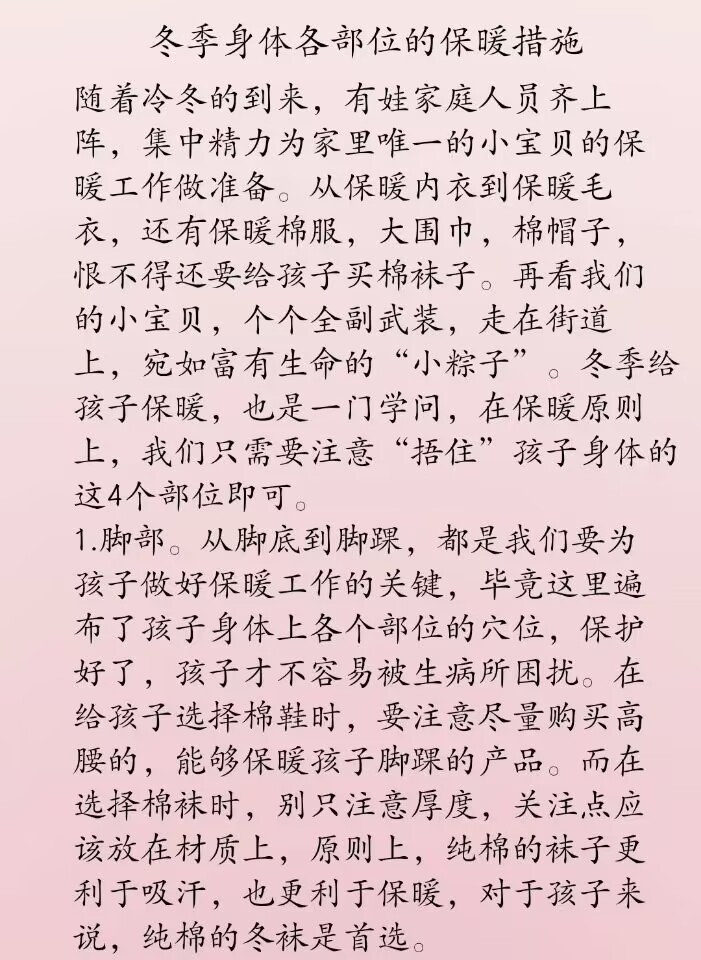 冬季身体各部位的保暖措施
随着冷冬的到来，有娃家庭人员齐上
阵，集中精力为家里唯一的小宝贝的保
暖工作做准备。从保暖内衣到保暖毛
衣，还有保暖棉服，大围巾，棉帽子，
恨不得还要给孩子买棉袜子。再看我们
的小宝贝，个个全副武装，走在街道
上，宛如富有生命的“小粽子”。冬季给
孩子保暖，也是一门学问，在保暖原则
上，我们只需要注意“捂住”孩子身体的
这4个部位即可。
1.脚部。从脚底到脚踝，都是我们要为
孩子做好保暖工作的关键，毕竟这里遍
布了孩子身体上各个部位的穴位，保护
好了，孩子才不容易被生病所困扰。在
给孩子选择棉鞋时，要注意尽量购买高
腰的，能够保暖孩子脚踝的产品。而在
选择棉袜时，别只注意厚度，关注点应
该放在材质上，原则上，纯棉的袜子更
利于吸汗，也更利于保暖，对于孩子来
说，纯棉的冬袜是首选。